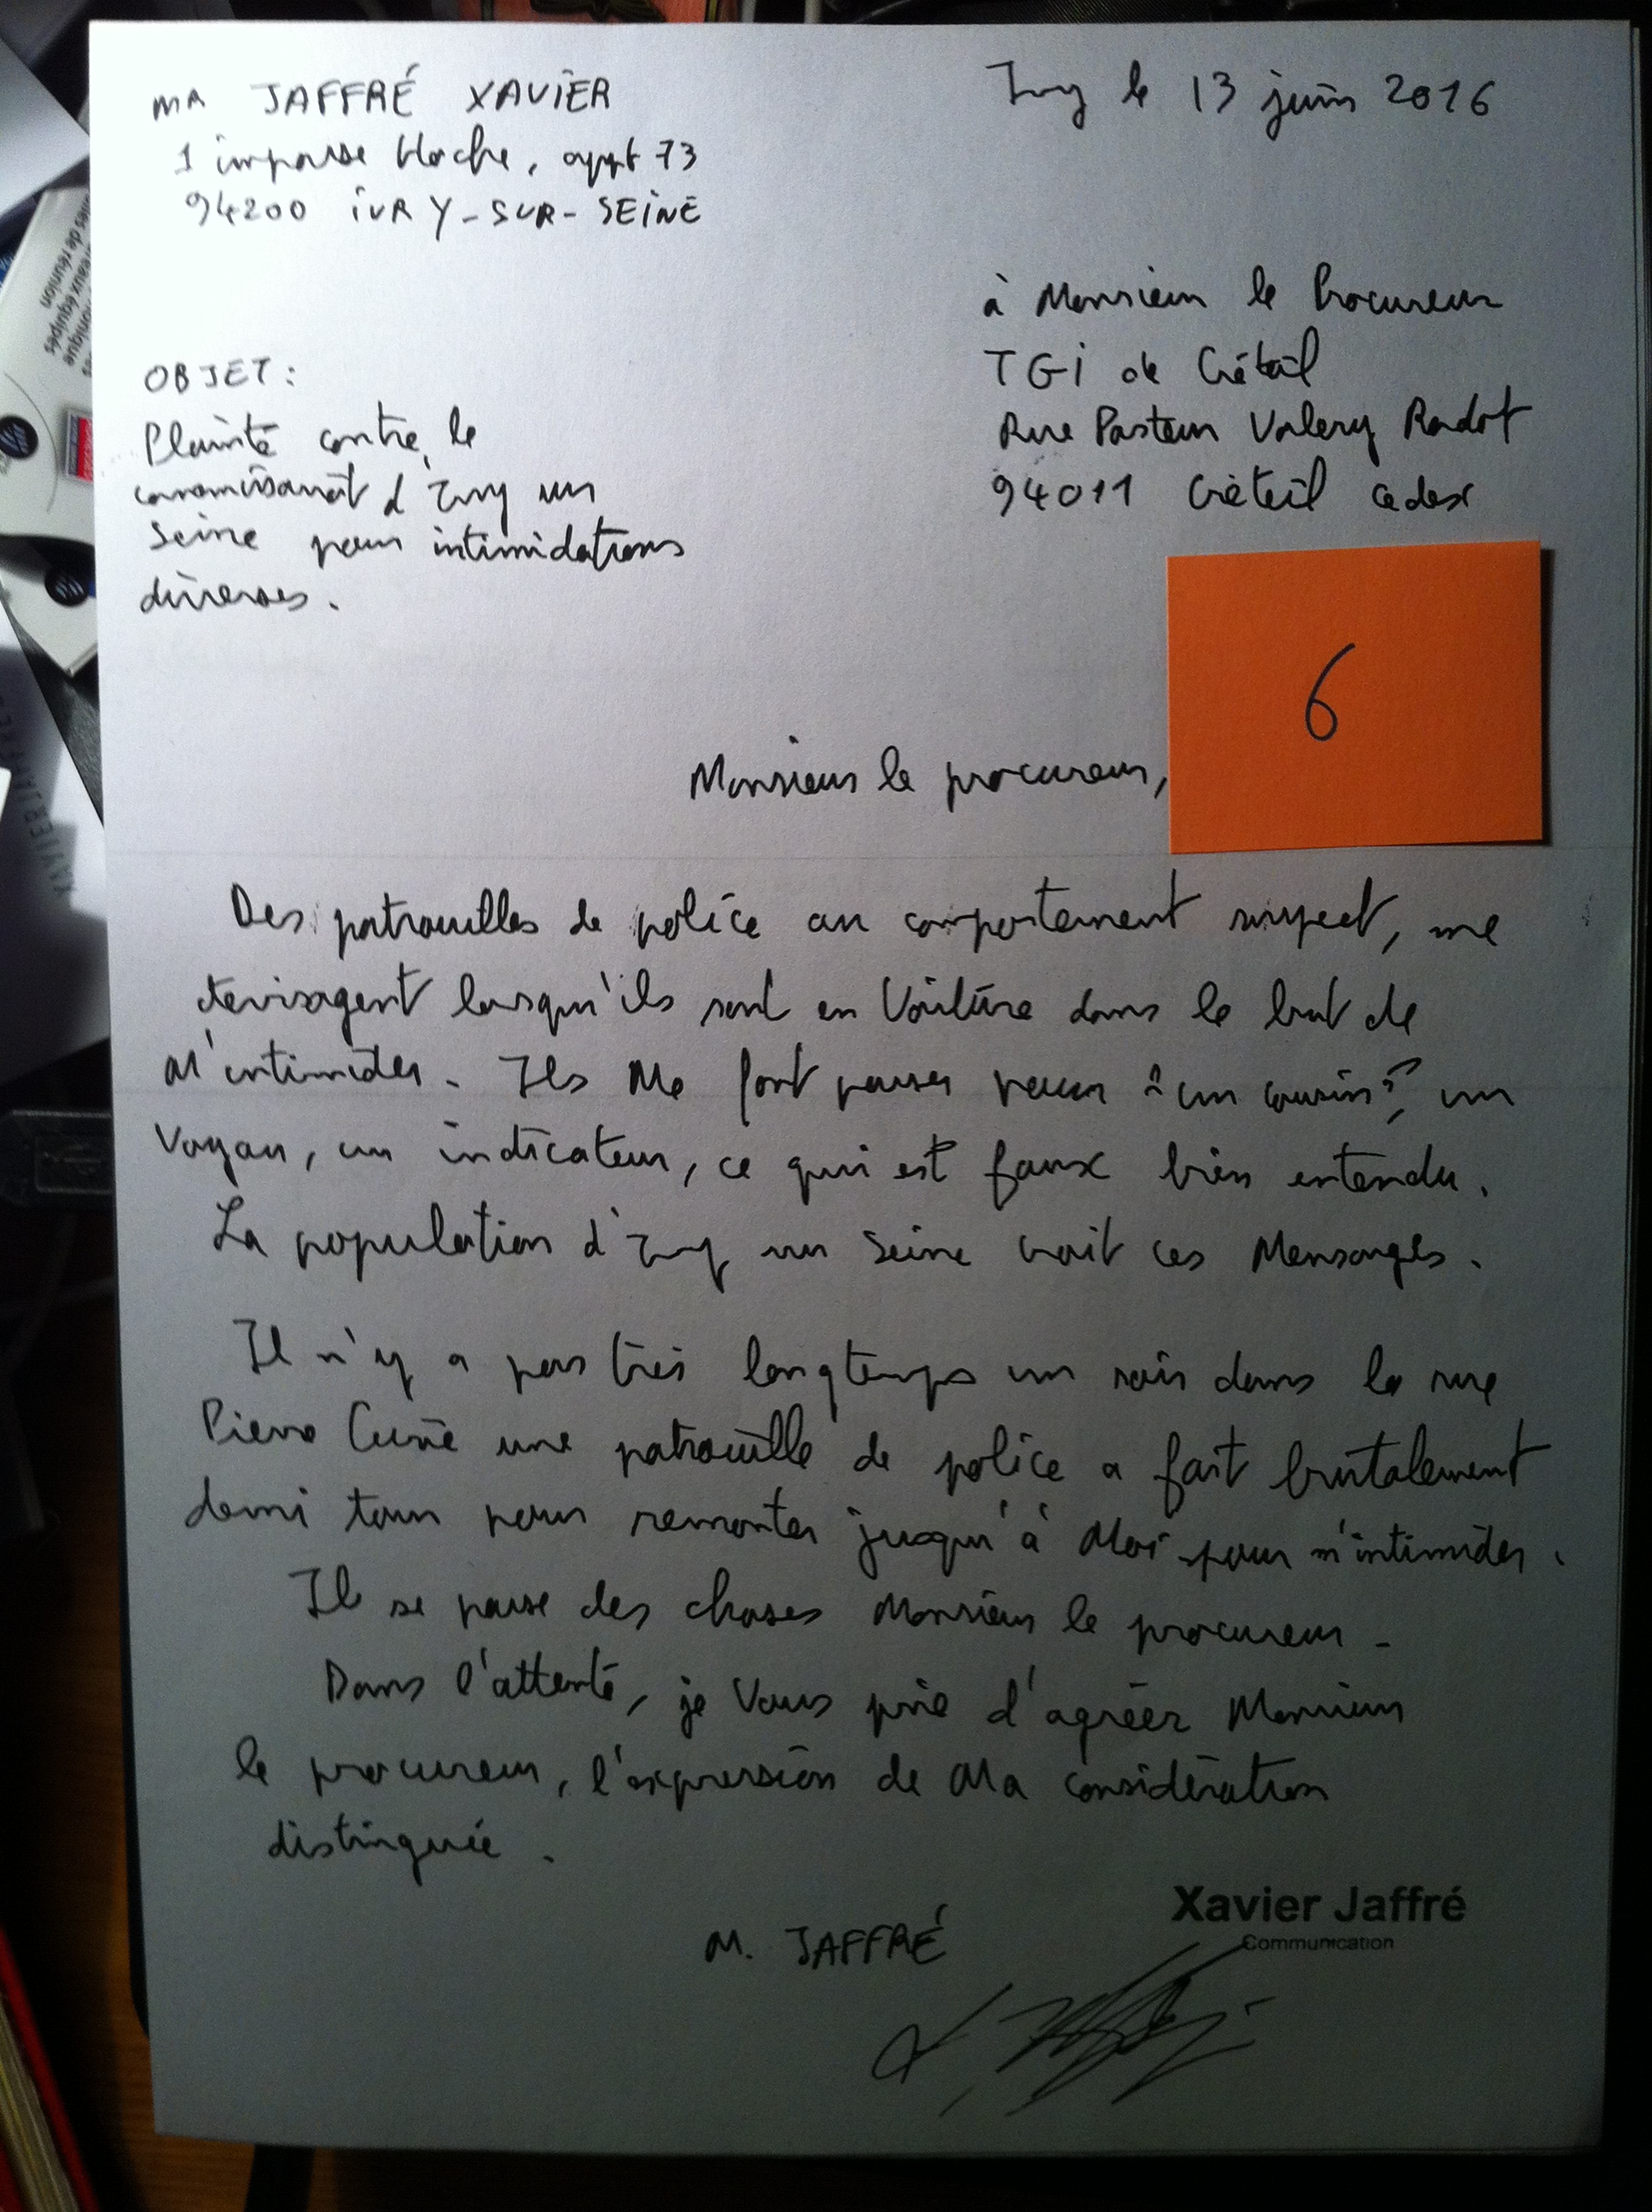 MR JAFFRÉ XAVIER
1 impasse Hoche, appt 73
94200 IVRY-SUR-SEINE
Ivry le 13 juin 2016
à Monsieur le Procureur
TGI de Créteil
Rue Pasteur Valery Radot
94011 Créteil cedex
OBJET:
Plainte contre le
commissariat d'Ivry sur
Seine pour intimidations
diverses.
6
Monsieur le procureur,
Des patrouilles de police au comportement suspect, me
devisagent lorsqu'ils sont en voiture dans le but de
m'intimider. Ils me font passer pour "un cousin", un
voyau, un indicateur, ce qui est faux bien entendu.
La population d'Ivry sur Seine croit ces mensonges.
Il n'y a pas très longtemps un soir dans la rue
Pierre Curie une patrouille de police a fait brutalement
demi tour pour remonter jusqu'à moi pour m'intimider.
Il se passe des choses Monsieur le procureur.
Dans l'attente, je vous prie d'agréer Monsieur
le procureur, l'expression de ma considération
distinguée.
M. JAFFRÉ
Xavier Jaffré
Communication